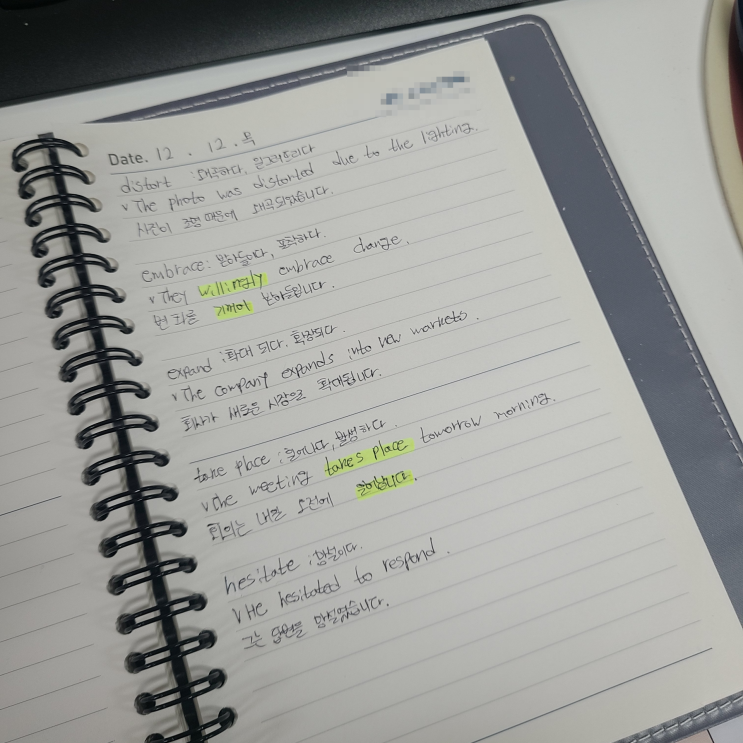 Date. 12 . 12 . 목
distort : 왜곡하다, 일그러뜨리다
v The photo was distorted due to the lighting.
사진이 조명 때문에 왜곡되었습니다.
embrace : 받아들이다, 포착하다.
v They willingly embrace change.
변화를 기꺼이 받아들입니다.
expand : 확대 되다. 확장되다.
v The company expands into new markets.
회사가 새로운 시장으로 확대됩니다.
take place : 일어나다, 발생하다.
v The meeting takes place tomorrow morning.
회의는 내일 오전에
hesitate : 망설이다.
v He hesitated to respond.
그는 답변을 망설였습니다.